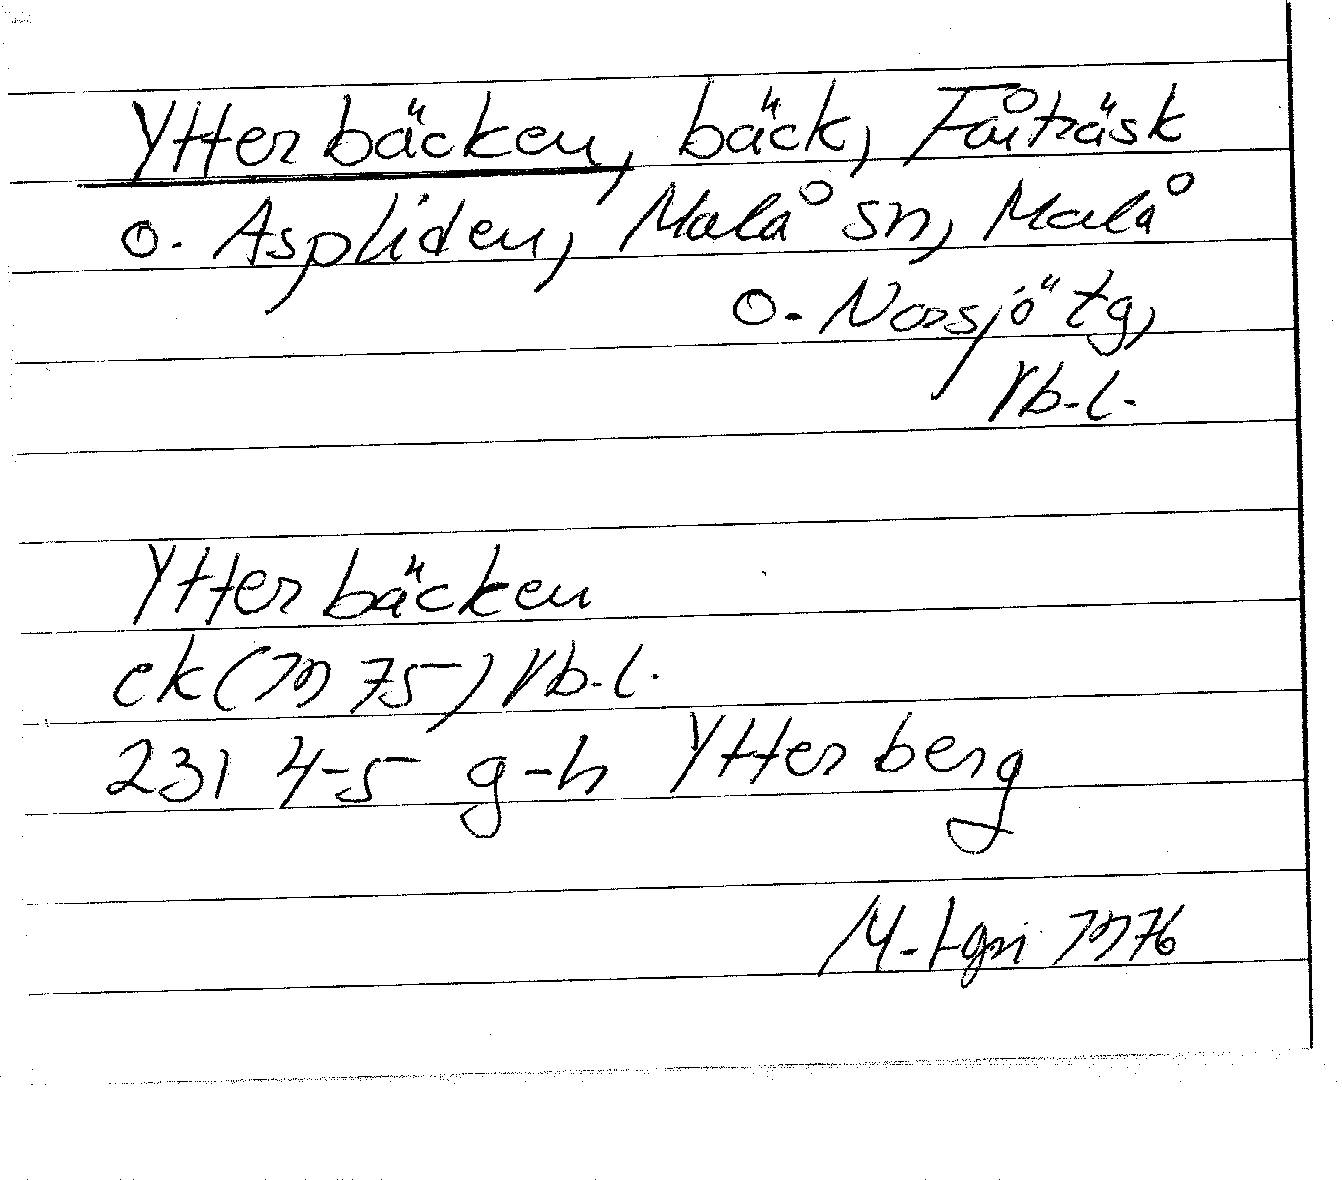 Ytterbäcken, bäck, Fårträsk
o. Aspliden, Malå sn, Malå
o. Norsjö tg,
Vb.l.
Ytterbäcken
ek (1975) Vb.l.
231 4-5 g-h Ytterberg
1976